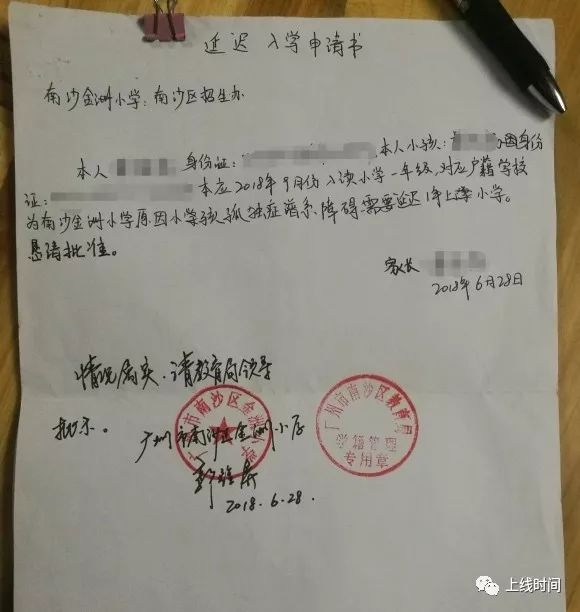 延迟入学申请书
南沙金洲小学:南沙区招生办
本人 身份证: 本人小孩: 身份
证: 本应2018年9月份入读小学一年级,对应户籍学校
为南沙金洲小学原因小孩孤独症谱系障碍需要延迟1年上小学。
恳请批准。
家长
2018年6月28日
情况属实、请教育局领导
批示。
广州市南沙区金洲小学
2018.6.28.
广州市南沙区金洲小学
广州市南沙区教育局
学籍管理
专用章
上线时间